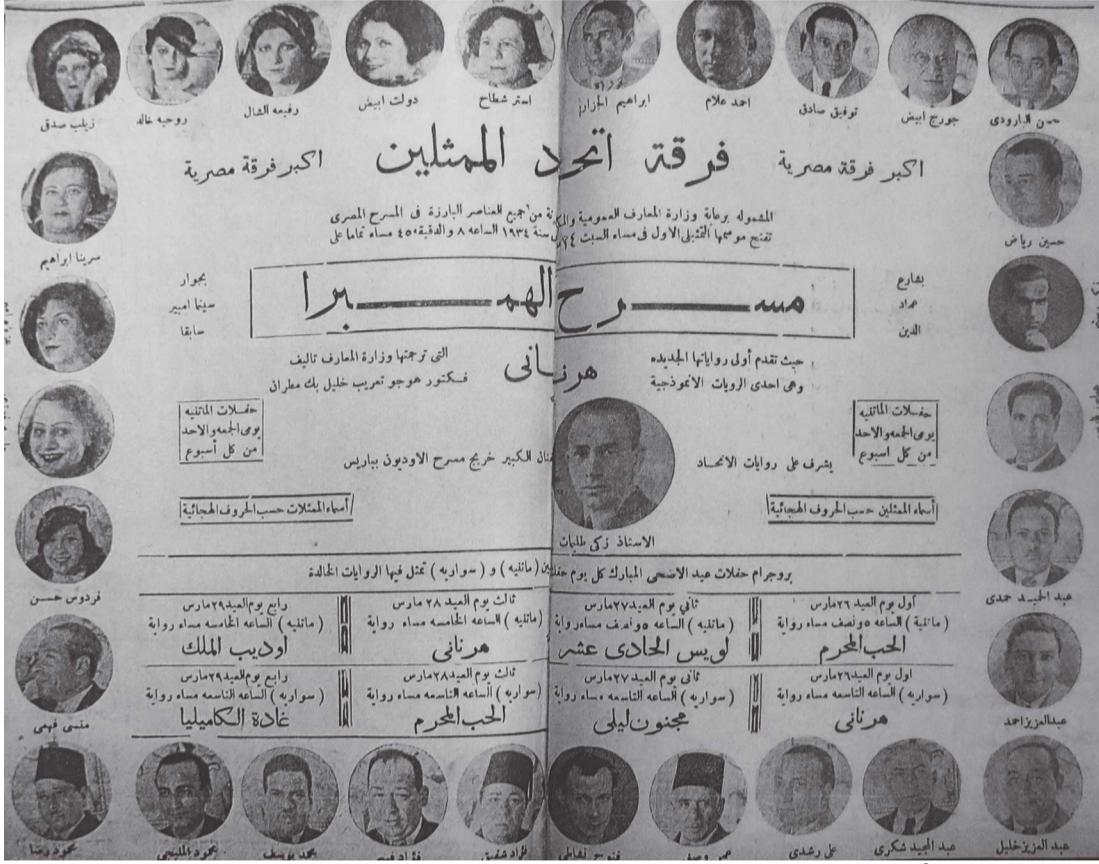 حسن البارودى
جورج ابيض
توفيق صادق
احمد علام
ابراهيم الجزار
استر شطاح
دولت ابيض
رفيعه الشال
روحيه خالد
زينب صدقى
اكبر فرقة مصرية
فرقة اتحد الممثلين
اكبر فرقة مصرية
المشموله برعاية وزارة المعارف العمومية من جميع العناصر البارزة فى المسرح المصرى
تفتح موسمها التمثيلى الاول فى مساء السبت ٢٤ سنة ١٩٣٤ الساعه ٨ والدقيقه ٤٥ مساء تماما على
حسين رياض
سرينا ابراهيم
بشارع
عماد
الدين
مسرح الهمبرا
بجوار
سينما امبير
سابقا
حيث تقدم أولى رواياتها الجديده
وهى احدى الرويات الانموذجية
هرنانى
التى ترجمتها وزارة المعارف تاليف
فكتور هوجو تعريب خليل بك مطران
حفلات الماتنيه
يومى الجمعه والاحد
من كل أسبوع
حفلات الماتنيه
يومى الجمعه والاحد
من كل أسبوع
يشرف على روايات الاتحاد
الكبير خريج مسرح الاوديون بباريس
أسماء الممثلين حسب الحروف الهجائية
أسماء الممثلات حسب الحروف الهجائية
الاستاذ زكى طليمات
عبد الحميد حمدى
فردوس حسن
بروجرام حفلات عيد الاضحى المبارك كل يوم (ماتنيه) و (سواريه) تمثل فيها الروايات الخالدة
أول يوم العيد ٢٦ مارس
(ماتنية) الساعه ٥ ونصف مساء رواية
الحب المحرم
ثانى يوم العيد ٢٧ مارس
(ماتنيه) الساعه ٥ ونصف مساء رواية
لويس الحادى عشر
ثالث يوم العيد ٢٨ مارس
(ماتنيه) الساعه الخامسه مساء رواية
هرنانى
رابع يوم العيد ٢٩ مارس
(ماتنيه) الساعه الخامسه مساء رواية
اوديب الملك
اول يوم العيد ٢٦ مارس
(سواريه) الساعه التاسعه مساء رواية
هرنانى
ثانى يوم العيد ٢٧ مارس
(سواريه) الساعه التاسعه مساء رواية
مجنون ليلى
ثالث يوم العيد ٢٨ مارس
(سواريه) الساعه التاسعه مساء رواية
الحب المحرم
رابع يوم العيد ٢٩ مارس
(سواريه) الساعه التاسعه مساء رواية
غادة الكاميليا
عبد العزيز احمد
منسى فهمى
عبد العزيز خليل
عبد المجيد شكرى
على رشدى
عمر وصفى
فتوح نشاطى
فؤاد شفيق
فؤاد فهيم
محمد يوسف
محمود المليجى
محمود رضا